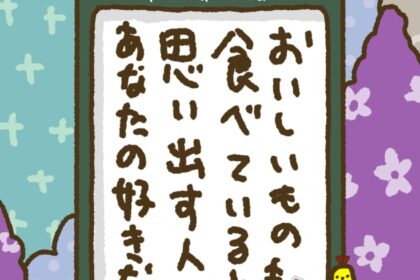 おいしいもの
食べている
思い出す人
あなたの好き